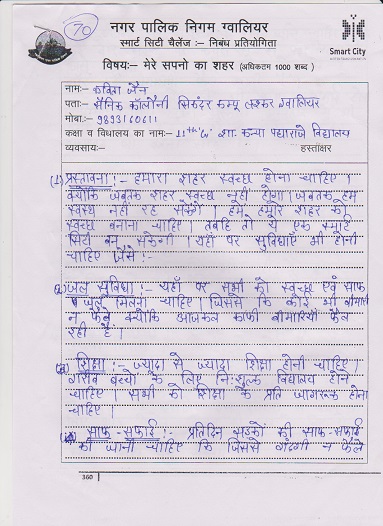 70
नगर पालिक निगम ग्वालियर
स्मार्ट सिटी चैलेंज :– निबंध प्रतियोगिता
Smart City
विषयः– मेरे सपनो का शहर (अधिकतम 1000 शब्द)
नामः– कविता जैन
पताः– सैनिक कॉलोनी सिकंदर कम्पू लश्कर ग्वालियर
मोबाः– 9893160611
कक्षा व विधालय का नामः– 11th शा. कन्या पद्माराजे विद्यालय
व्यवसायः– हस्ताक्षर
(1) प्रस्तावना :- हमारा शहर स्वच्छ होना चाहिए।
क्योंकि जबतक शहर स्वच्छ नहीं होगा। जबतक हम
स्वस्थ नहीं रह सकेंगे। हमे हमारे शहर को
स्वच्छ बनाना चाहिए। तबहि तो ये एक स्मार्ट
सिटी बन सकेगी। यहाँ पर सुविधाएँ भी होनी
चाहिए जैसे :-
जल सुविधा :- यहाँ पर सभी को स्वच्छ एवं साफ
जल मिलना चाहिए। जिससे कि कोई भी बीमारी
न फैले क्योंकि आजकल काफी बीमारियाँ फैल
रही है।
शिक्षा :- ज्यादा से ज्यादा शिक्षा होनी चाहिए।
गरीब बच्चो के लिए नि:शुल्क विद्यालय होने
चाहिए। सभी को शिक्षा के प्रति जागरूक होना
चाहिए।
साफ-सफाई :- प्रतिदिन सड़को की साफ-सफाई
की जानी चाहिए कि जिससे गंदगी न फैले
360